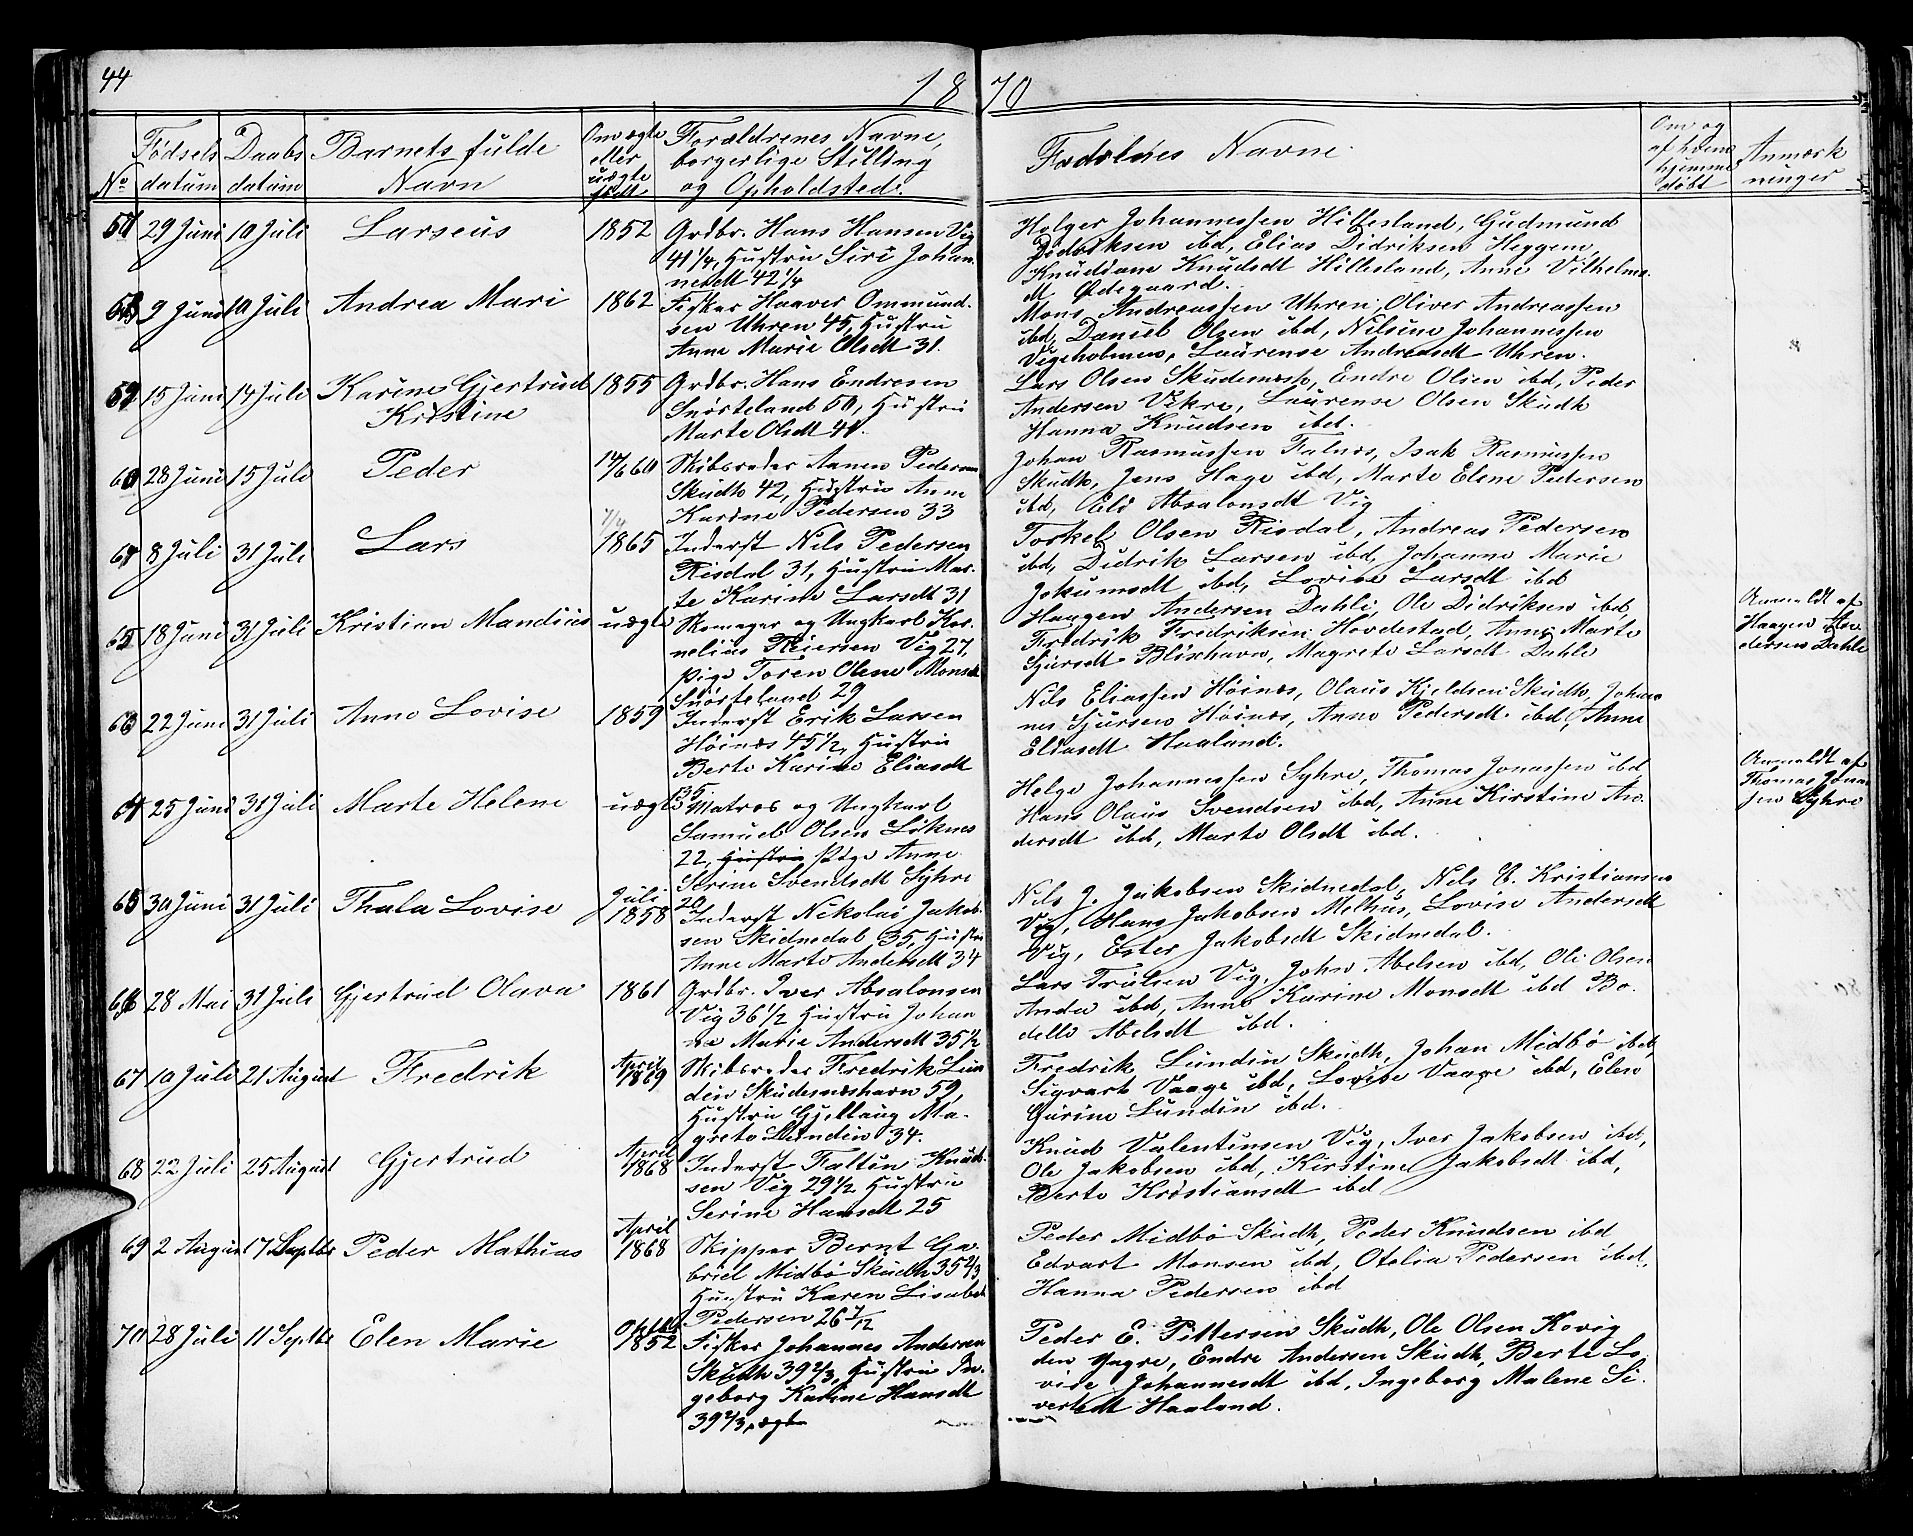 44
1870
No
Fødsels datum
Daabs datum
Barnets fulde Navn
Om ægte eller uægte født
Forældrenes Navne, borgerlige Stilling og Opholdsted.
Faddernes Navne
Om og af hvem hjemme døbt
Anmærkninger
57 29 Juni 10 Juli Larseus 1852
Grdbr. Hans Hansen Vig
41 1/4, Hustru Siri Johan
nesdt 42 1/4
Holger Johannessen Hillesland, Gudmund
Didriksen ibd, Elias Didriksen Heggem,
Knudiane Knudsdt Hillesland, Anne Vilhelms
dt Ødegaard.
58 9 Juni 10 Juli Andrea Mari 1862
Fisker Haaver Ommund-
sen Uhren 45, Hustru
Anne Marie Olsdt 31.
Mons Andreassen Uhren, Oliver Andreassen
ibd, Daniel Olsen ibd, Nilsine Johannessen
Vigeholmen, Laurense Andreasdt Uhren.
59 15 Juni 14 Juli Karine Gjertrud
Kristine
1855
Grdbr. Hans Endresen
Snørteland 50, Hustru
Marte Olsdt 41.
Lars Olsen Skudenesh, Endre Olsen ibd, Peder
Andersen Vikre, Laurense Olsen Skudh
Hanna Knudsen ibd.
60 28 Juni 15 Juli Peder 14/6 60
Skibsreder Aanen Pedersen
Skudh 42, Hustru Anne
Karine Pedersen 33
Johan Rasmussen Falnes, Isak Rasmussen
Skudh, Jens Hage ibd, Marte Elene Pedersen
ibd, Eli Absalonsdt Vig
61 8 Juli 31 Juli Lars 7/4
1865
Inderst Nils Pedersen
Risdal 31, Hustru Mar-
te Karine Larsdt 31
Torkel Olsen Risdal, Andreas Pedersen
ibd, Didrik Larsen ibd, Johanne Marie
Jokumsdt ibd, Lovise Larsdt ibd
62 18 Juni 31 Juli Kristian Mandius uægte
Skomager og Ungkarl Kor
nelius Reiersen Vig 27,
Pige Toren Olene Monsdt
Snørteland 29
Haagen Andersen Dahle, Ole Didriksen ibd,
Fredrik Fredriksen Hovdestad, Anne Marte
Sjursdt Blixhavn, Magrete Larsdt Dahle
Anmeldt af
Haagen An
dersen Dahle
63 22 Juni 31 Juli Anne Lovise 1859
Inderst Erik Larsen
Høines 45 1/2, Hustru
Berte Karine Eliasdt
35
Nils Eliassen Høines, Olaus Kjeldsen Skudh, Johan
nes Sjursen Høines, Anne Pedersdt ibd, Anne
Eliasdt Haaland.
64 25 Juni 31 Juli Marte Helene uægte
Matros og Ungkarl
Samuel Olsen Liknes
22, Hustru Pige Anne
Serine Svendsdt Syhre
20
Helge Johannessen Syhre, Thomas Jonassen ibd
Hans Olaus Svendsen ibd, Anne Kirstine An-
dersdt ibd, Marte Olsdt ibd.
Anmeldt af
Thomas Jonas
sen Syhre
65 30 Juni 31 Juli Thala Lovise Juli
1858
Inderst Nikolai Jakob-
sen Skidnedal 35, Hustru
Anne Marte Andersdt 34
Nils J. Jakobsen Skidnedal, Nels Kristiansen
Vig, Hans Jakobsen Melhus, Lovise Andersdt
Vig, Ester Jakobsdt Skidnedal.
66 28 Mai 31 Juli Gjertrud Olava 1861
Grdbr. Iver Absalonsen
Vig 36 1/2 Hustru Johan
ne Marie Andersdt 35 1/2
Lars Trulsen Vig, John Abelsen ibd, Ole Olsen
Anda ibd, Anne Karine Monsdt ibd Bo-
delle Abelsdt ibd.
67 10 Juli 21 August Fredrik April
1869
Skibsreder Fredrik Lun
din Skudesneshavn 59,
Hustru Gjellaug Ma-
grete Lundin 34.
Fredrik Lundin Skudh, Johan Midbø ibd,
Sigvart Vaage ibd, Lovise Vaage ibd, Elen
Gurine Lundin ibd.
68 22 Juli 25 August Gjertrud April
1868
Inderst Faltin Knud-
sen Vig 29 1/2 Hustru
Serine Hansdt 25
Knud Valentinsen Vig, Iver Jakobsen ibd,
Ole Jakobsen ibd, Kirstine Jakobsdt ibd,
Berte Kristiansdt ibd
69 2 August 17 Septbr Peder Mathias April
1868
Skipper Bernt Ga-
briel Midbø Skudh 35 2/3
Hustru Karen Lisabet
Pedersen 26 7/12
Peder Midbø Skudh, Peder Knudsen ibd
Edvart Monsen ibd, Otelia Pedersen ibd,
Hanna Pedersen ibd
70 28 Juli 11 Septbr Elen Marie Oktbr
1852
Fisker Johannes Andersen
Skudh 39 2/3, Hustru In-
geborg Karine Hansdt
39 2/3, ægte
Peder E. Pittersen Skudh, Ole Olsen Kovig
den Yngre, Endre Andersen Skudh, Berte Lo
vise Johannesdt ibd, Ingeborg Malene Si-
vertsdt Haaland.